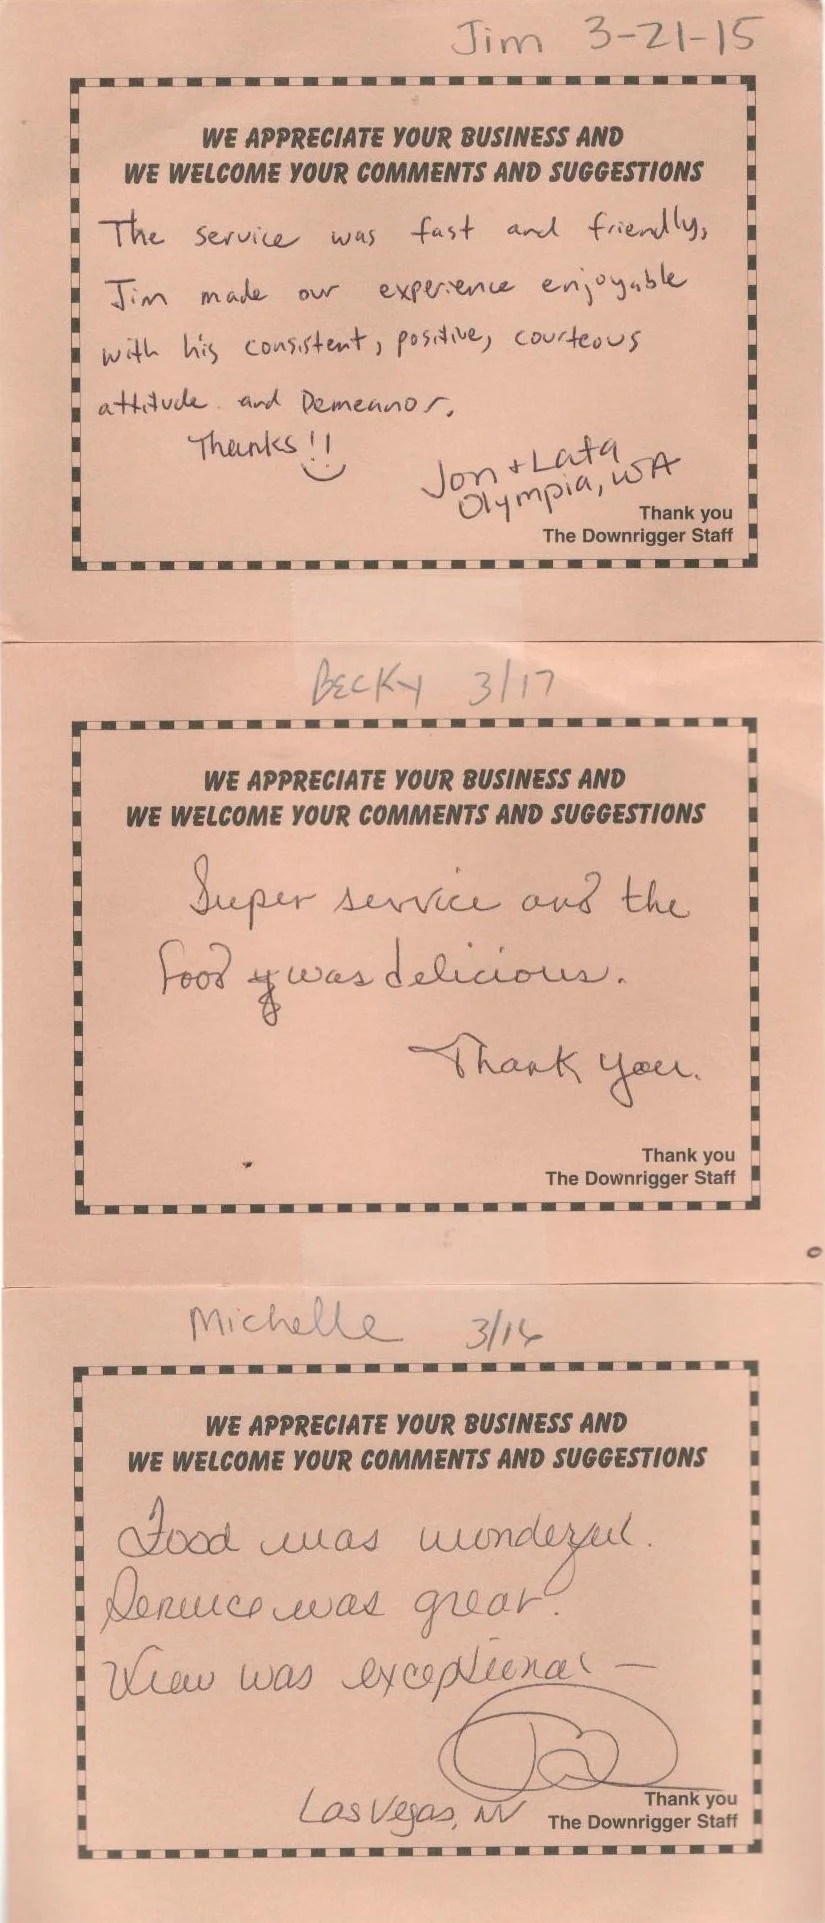 Jim 3-21-15
WE APPRECIATE YOUR BUSINESS AND
WE WELCOME YOUR COMMENTS AND SUGGESTIONS
The service was fast and friendly,
Jim made our experience enjoyable
with his consistent, positive, courteous
attitude and Demeanor.
Thanks!!
Jon + Lata
Olympia, WA
Thank you
The Downrigger Staff
BECKY 3/17
WE APPRECIATE YOUR BUSINESS AND
WE WELCOME YOUR COMMENTS AND SUGGESTIONS
Super service and the
food was delicious.
Thank you.
Thank you
The Downrigger Staff
Michelle 3/16
WE APPRECIATE YOUR BUSINESS AND
WE WELCOME YOUR COMMENTS AND SUGGESTIONS
Food was wonderful.
Service was great.
View was exceptional —
Las Vegas, NV
Thank you
The Downrigger Staff